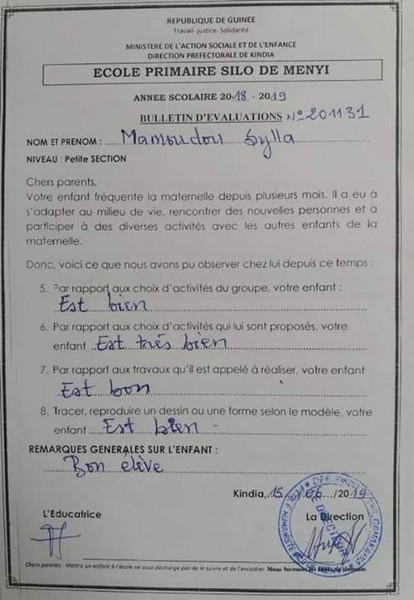 REPUBLIQUE DE GUINEE
Travail- justice- Solidarité
MINISTERE DE L'ACTION SOCIALE ET DE L'ENFANCE
DIRECTION PREFECTORALE DE KINDIA
ECOLE PRIMAIRE SILO DE MENYI
ANNEE SCOLAIRE 2018 - 2019
BULLETIN D'EVALUATIONS N°201131
NOM ET PRENOM : Mamoudou Sylla
NIVEAU : Petite SECTION
Chers parents,
Votre enfant fréquente la maternelle depuis plusieurs mois. Il a eu à
s'adapter au milieu de vie, rencontrer des nouvelles personnes et à
participer à des diverses activités avec les autres enfants de la
maternelle.
Donc, voici ce que nous avons pu observer chez lui depuis ce temps :
5. Par rapport aux choix d'activités du groupe, votre enfant :
Est bien
6. Par rapport aux choix d'activités qui lui sont proposés, votre
enfant Est très bien
7. Par rapport aux travaux qu'il est appelé à réaliser, votre enfant
Est bon
8. Tracer, reproduire un dessin ou une forme selon le modèle, votre
enfant Est bien -
REMARQUES GENERALES SUR L'ENFANT :
Bon élève
Kindia, 15 / 06 /2019
L'Educatrice La Direction
Chers parents : Mettre un enfant à l'école ne vous décharge pas de le suivre et de l'encadrer. Nous formons